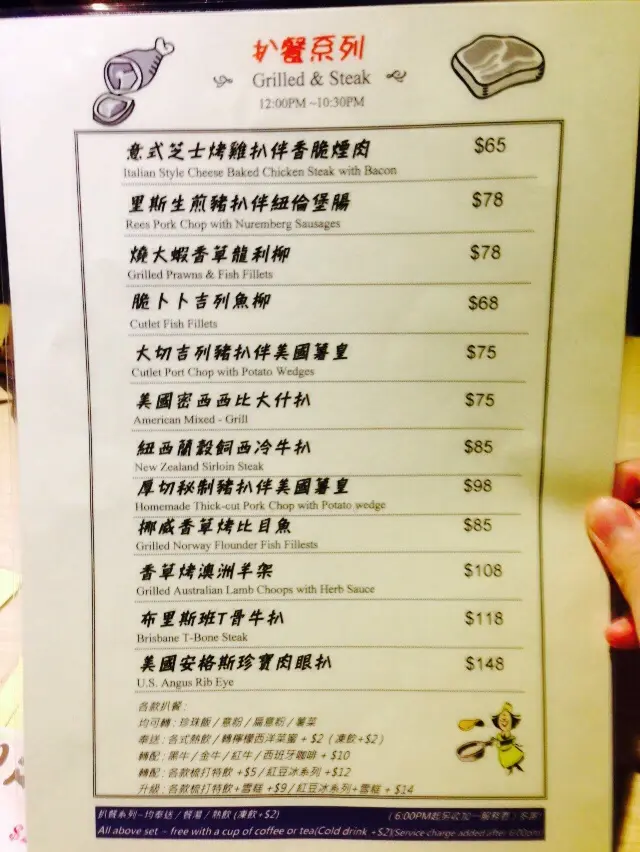 扒餐系列
Grilled & Steak
12:00PM ~10:30PM
意式芝士烤雞扒伴香脆煙肉 $65
Italian Style Cheese Baked Chicken Steak with Bacon
里斯生煎豬扒伴紐倫堡腸 $78
Rees Pork Chop with Nuremberg Sausages
燒大蝦香草龍利柳 $78
Grilled Prawns & Fish Fillets
脆卜卜吉列魚柳 $68
Cutlet Fish Fillets
大切吉列豬扒伴美國薯皇 $75
Cutlet Port Chop with Potato Wedges
美國密西西比大什扒 $75
American Mixed - Grill
紐西蘭穀飼西冷牛扒 $85
New Zealand Sirloin Steak
厚切秘制豬扒伴美國薯皇 $98
Homemade Thick-cut Pork Chop with Potato wedge
挪威香草烤比目魚 $85
Grilled Norway Flounder Fish Fillests
香草烤澳洲羊架 $108
Grilled Australian Lamb Choops with Herb Sauce
布里斯班T骨牛扒 $118
Brisbane T-Bone Steak
美國安格斯珍寶肉眼扒 $148
U.S. Angus Rib Eye
各款扒餐:
均可轉: 珍珠飯 / 意粉 / 扁意粉 / 薯菜
奉送: 各式熱飲 / 轉檸檬西洋菜蜜 + $2 (凍飲+$2)
轉配: 黑牛 / 金牛 / 紅牛 / 西班牙咖啡 + $10
轉配: 各款梳打特飲 +$5 / 紅豆冰系列 +$12
升級: 各款梳打特飲+雪糕 +$9 / 紅豆冰系列+雪糕 + $14
扒餐系列~均奉送 / 餐湯 / 熱飲 (凍飲+$2) (6:00PM起另收加一服務費)
All above set ~ free with a cup of coffee or tea(Cold drink +$2)(Service charge added after 6:00pm)